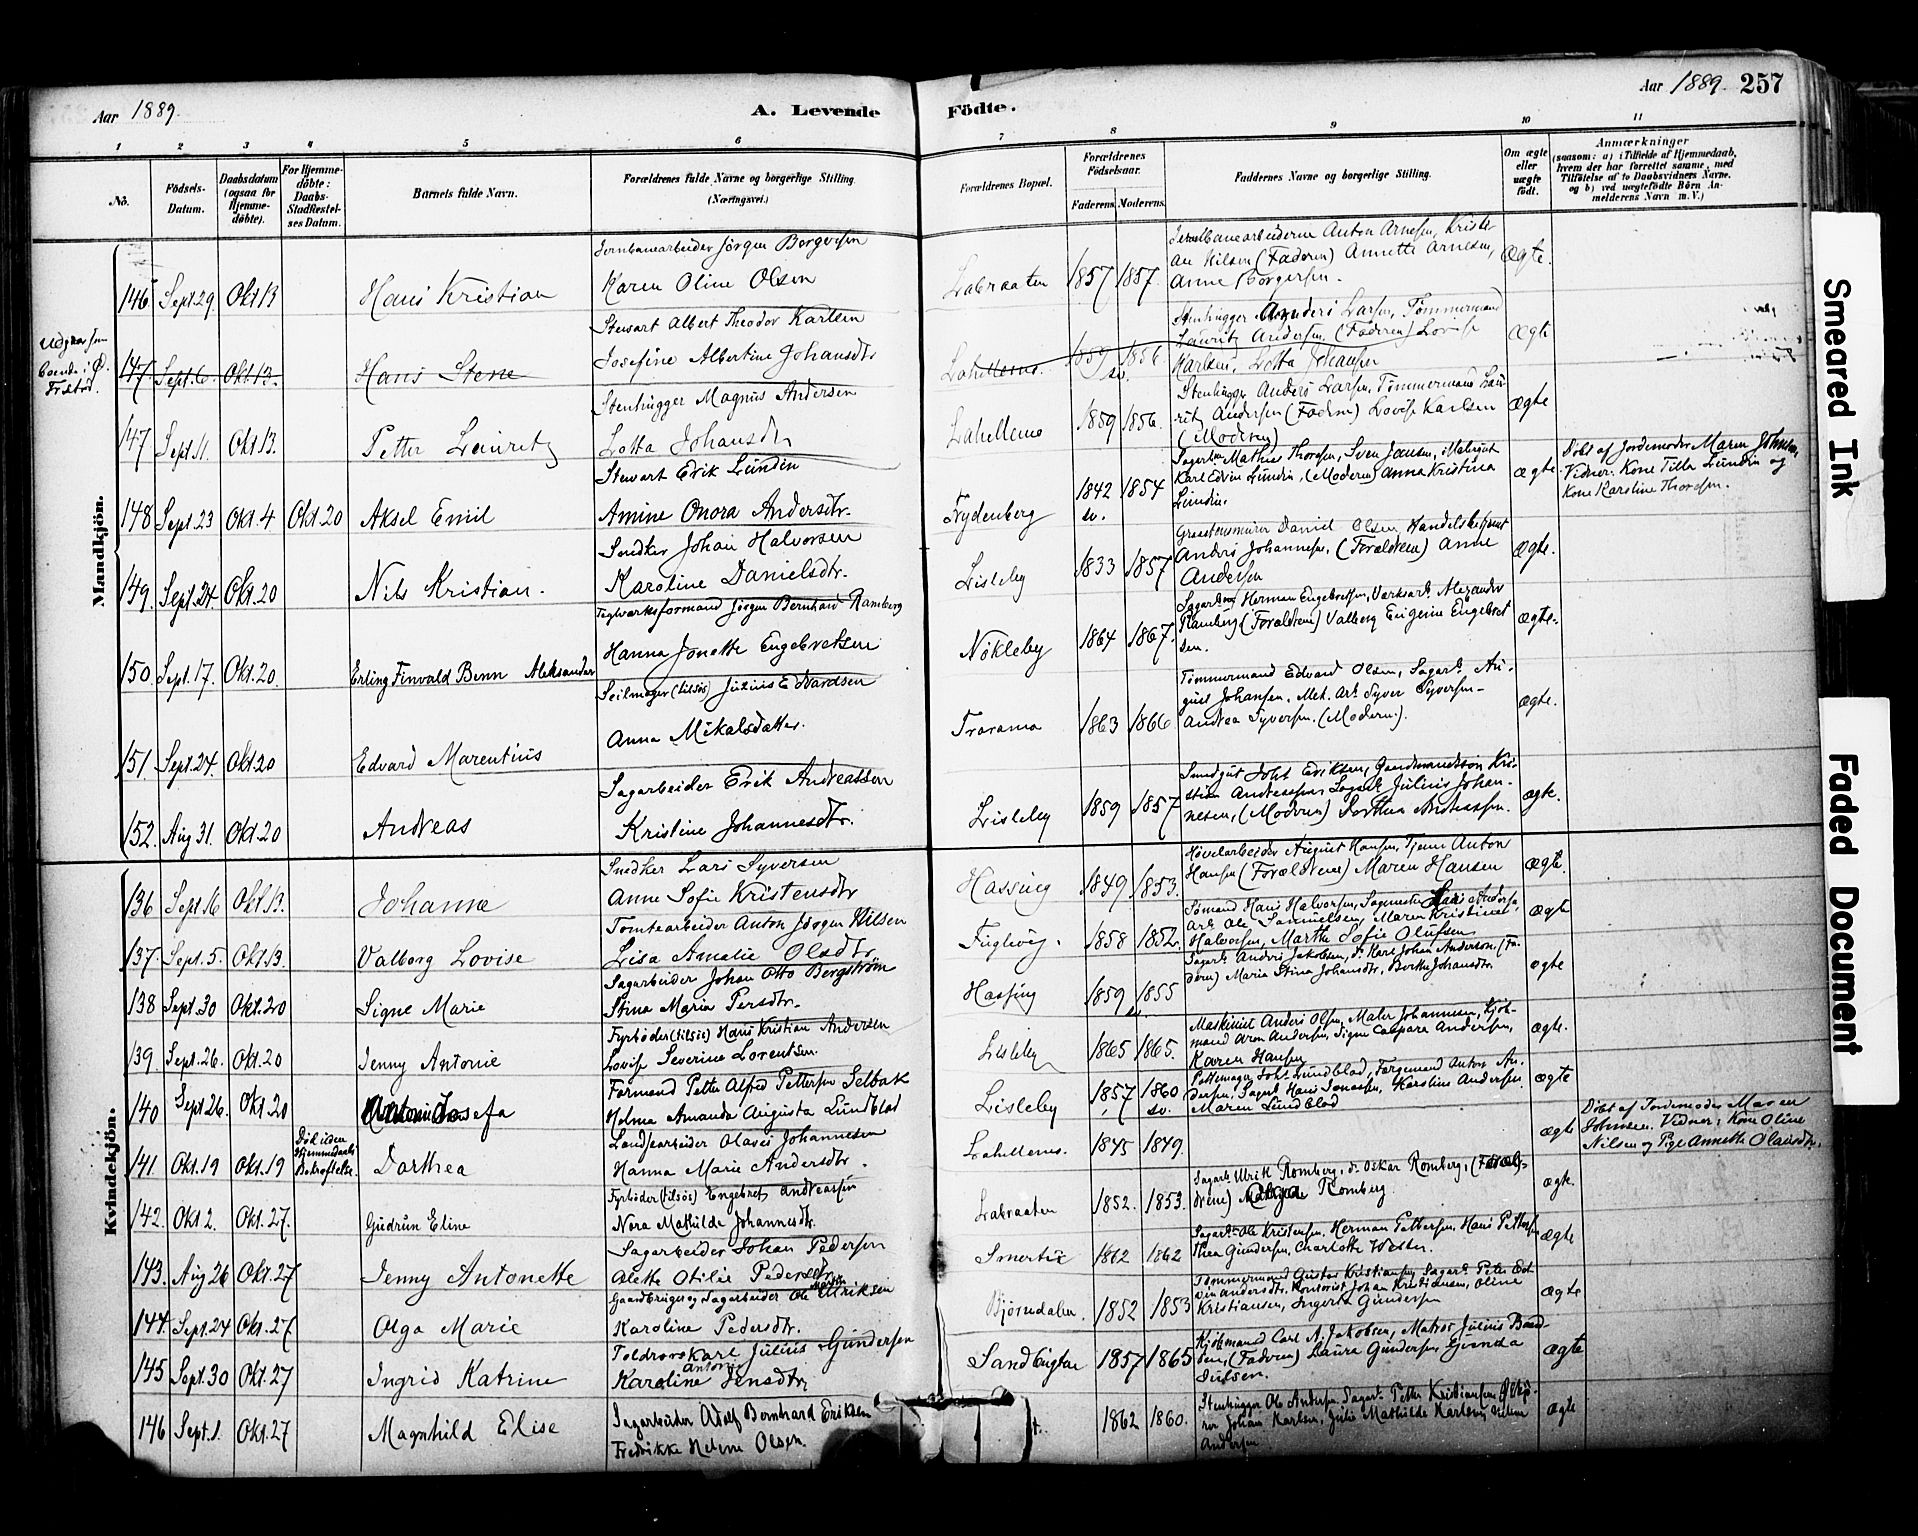 Aar 1889.
A. Levende
Födte.
Aar 1889. 257
1 2 3 4 5 6 7 8 9 10 11
No.
Födsels-Datum.
Daabsdatum (ogsaa for Hjemme-döbte).
For Hjemme-döbte: Daabs-Stadfæstel-ses Datum.
Barnets fulde Navn.
Forældrenes fulde Navne og borgerlige Stilling. (Næringsvei.)
Forældrenes Bopæl.
Forældrenes Födselsaar.
Faderens. Moderens.
Faddernes Navne og borgerlige Stilling.
Om ægte eller uægte födt.
Anmærkninger
(saasom: a) i Tilfælde af Hjemmedaab, hvem der har forrettet samme, med Tilföielse af to Daabsvidners Navne, og b) ved uægtefödte Börn Anmelderens Navn m.V.)
Mandkjön.
146 Sept 29. Okt 13 Hans Kristian
Jernbanearbeider Jörgen Borgersen
Karen Oline Olsen
Labraaten 1857 1857.
Jernbanearbeiderne Anton Arnesen, Kristian Nilsen (Faderen) Annette Arnesen, Anne Borgersen.
Ægte.
147. Sept. 6. Okt. 13. Hans Stene
Stuart Albert Theodor Karlsen
Josefine Albertine Johansdtr
Lahellems. 1859 1856.
Stenhugger Anders Larsen, Tömmermand Lauritz Andersen (Faderen) Lovise Karlsen, Lotta Johansen
Ægte
147 Sept. 11. Okt 13. Petter Lauritz
Stenhugger Magnus Andersen
Lotta Johansdtr
Lahellemo 1859 1856.
Stenhugger Anders Larsen, Tömmermand Lauritz Andersen (Faderen) Lovise Karlsen (Moderen)
Ægte
148 Sept 23 Okt. 4 Okt. 20 Aksel Emil
Stuart Erik Lundin
Amine Onora Andersdtr.
Frydenberg 1842 sv. 1854
Sagarb. Mathias Thoresen, Sven Jansen, Karl Edvin Lundin, (Moderen) Anna Kristina Lundin.
Ægte
Döbt af Jordemoder Maren Johnsen. Vidner: Kone Tilla Lundin og Kone Karoline Thoresen.
149. Sept. 24. Okt. 20 Nils Kristian.
Snedker Johan Halvorsen
Karoline Danielsdtr.
Lisleby 1833 1857
Graastensmurer Daniel Olsen, Handelsbetjent Anders Johannesen, (Forældrene) Anne Andersen
Ægte.
150. Sept. 17. Okt. 20. Erling Finvald Benn Aleksander
Teglværksformand Jörgen Bernhard Ramberg
Hanna Jonette Engebretsen
Nökleby 1864 1867.
Sagarb. Herman Engebretsen, Værksarb. Alexander Ramberg (Forældrene) Valborg Eugenie Engebretsen.
Ægte.
151 Sept. 24. Okt. 20 Edvard Marentius
Seilmager (tilsös) Julius Edvardsen
Anna Mikalsdatter.
Trarama 1863 1866
Tömmermand Edvard Olsen, Sagarb. August Johansen, Mek. Arb. Syver Syversen, Andrea Syversen. (Moderen.)
Ægte.
152. Aug 31. Okt. 20 Andreas
Sagarbeider Erik Andreassen
Kristine Johannesdtr.
Lisleby 1859 1857
Smedgut Johs Eriksen, Gaardmandssön Kristian Andreassen, Sagarb. Julius Johannesen, (Moderen) Dorthea Andreassen.
Ægte.
Kvindekjön.
136 Sept 16 Okt. 13. Johanne
Snedker Lars Syversen
Anne Sofie Kristensdtr
Hassing 1849 1853.
Hövelarbeider August Hansen, Tjener Anton Hansen (Forældrene) Maren Hansen
Ægte.
137. Sept. 5. Okt. 13. Valborg Lovise
Tomtearbeider Anton Jörgen Nilsen
Lisa Amalie Olsdtr.
Fuglevig. 1858 1852.
Sömand Hans Halvorsen, Sagmester Lars Andersen, Arb. Ole Samuelsen, Maren Kristine Halvorsen, Marthe Sofie Olufsen
Ægte
138 Sept. 30 Okt. 20 Signe Marie
Sagarbeider Johan Otto Bergström
Stina Maria Persdtr.
Hassing 1859 1855
Sagarb. Anders Jakobsen, d. Karl Johan Anderson, (Faderen) Maria Stina Johansdtr, Berthe Johansdtr.
Ægte
139 Sept. 26. Okt. 20 Jenny Antonie
Fyrböder (tilsös) Hans Kristian Andersen
Lovise Severine Lorentsen.
Lisleby 1865 1865.
Maskinist Anders Olsen, Maler Johannesen, Sjömand Aron Andersen, Signe Caspara Andersen, Karen Hansen
Ægte.
140 Sept 26. Okt. 20 Josefa
Formand Petter Alfred Pettersen Selbak
Helma Amanda Augusta Lundblad
Lisleby 1857 1860 sv.
Pottemager Johs Lundblad, Færgemand Anton Andersen, Sagarb. Hans Jonassen, Karoline Andersen, Maren Lundblad
Ægte
141 Okt. 19 Okt. 19 Död uden Hjemmedaabs Bekræftelse. Dorthea
Landsearbeider Olaves Johannesen
Hanna Marie Andersdtr.
Lahellems. 1845 1849.
Ægte
Döbt af Jordemoder Maren Johnsen. Vidner: Kone Oline Nilsen og Pige Annette Olausdtr.
142. Okt 2. Okt. 27. Gudrun Eline
Fyrböder (tilsös) Engebret Andreassen
Nora Mathilde Johannesdtr.
Labraaten 1852. 1853.
Sagarb. Ulrik Romberg, d. Oskar Romberg, (Forældrene) Romberg.
Ægte.
143. Aug 26 Okt. 27 Jenny Antonette
Sagarbeider Johan Pedersen
Alette Otilie Pedersdtr
Smertu 1862 1862
Sagarb. Ole Kristensen, Herman Pettersen, Hans Pettersen, Thea Gundersen, Charlotte Wester.
Ægte
144. Sept. 24 Okt. 27 Olga Marie
Gaardbruger og Sagarbeider Ole Ulriksen
Karoline Pedersdtr.
Björndalen 1852 1853
Tömmermand Gustav Kristiansen, Sagarb. Peter Edvin Andersdtr, Kontorist Johan Kristiansen, Oline Kristiansen, Ingerta Gundersen
Ægte
145 Sept. 30 Okt. 27 Ingrid Katrine
Toldrorskarl Julius Gundersen
Karoline Antonie Jensdtr,
Sandbugten 1857 1865
Kjöbmand Carl A. Jakobsen, Matros Julius (Faderen) Laura Gundersen, Gunda Julsen.
Ægte
146 Sept. 1. Okt. 27 Magnhild Elise
Sagarbeider Adolf Bernhard Eriksen
Fredrikke Helene Olsen.
1862 1860.
Stenhugger Ole Andersen, Sagarb. Petter Kristiansen, Johan Karlsen, Julie Mathilde Karlsen, Helene Andersen.
Ægte
Smeared Ink
Faded Document